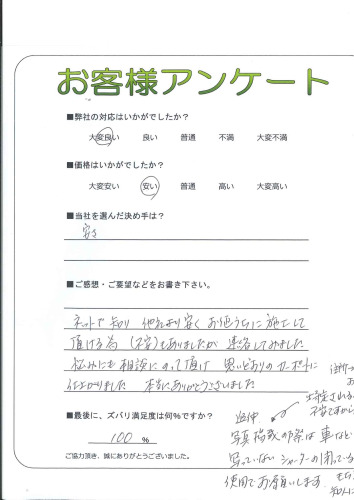 お客様アンケート
■弊社の対応はいかがでしたか？
大変良い 良い 普通 不満 大変不満
■価格はいかがでしたか？
大変安い 安い 普通 高い 大変高い
■当社を選んだ決め手は？
安さ
■ご感想・ご要望などをお書き下さい。
ネットで知り 他社より安く お値うちに施工して
頂ける為 (不安)もありましたが 連絡してみました
悩みにも相談にのって頂け 思いどおりのカーポートに
仕上がりました 本当にありがとうございました
■最後に、ズバリ満足度は何％ですか？
100 %
ご協力頂き、誠にありがとうございました。
追伸
写真掲載の際は 車など
写っていない シャッターの閉っている
使用でお願いします